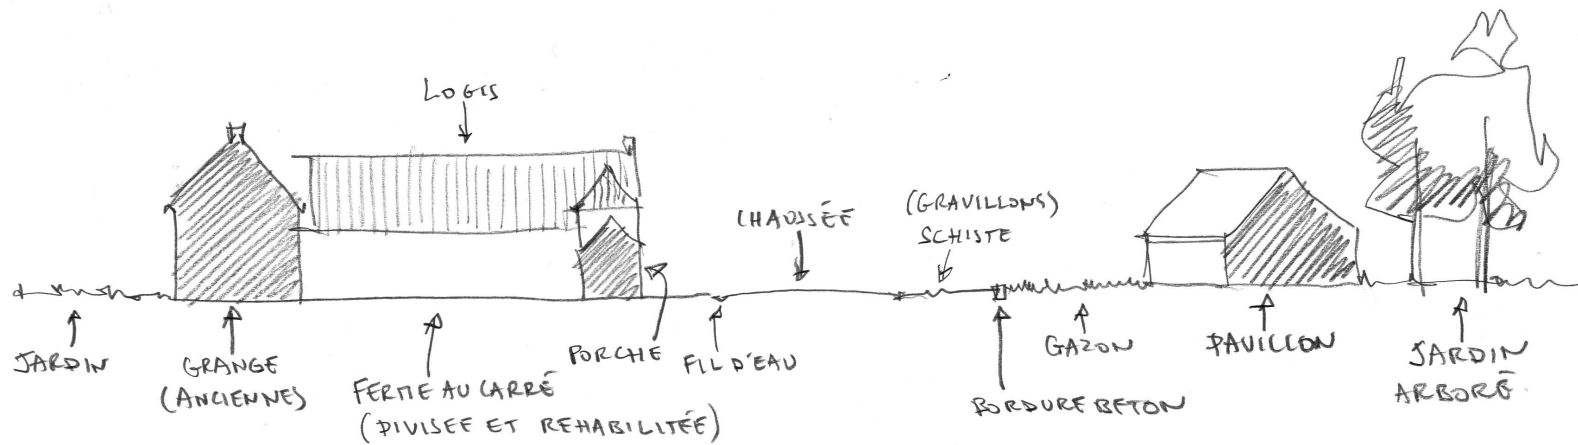 LOGIS
CHAUSSÉE
(GRAVILLONS)
SCHISTE
JARDIN
GRANGE
(ANCIENNES)
FERME AU CARRÉ
(DIVISEE ET REHABILITÉE)
PORCHE
FIL D'EAU
BORDURE BETON
GAZON
PAVILLON
JARDIN
ARBORÉ